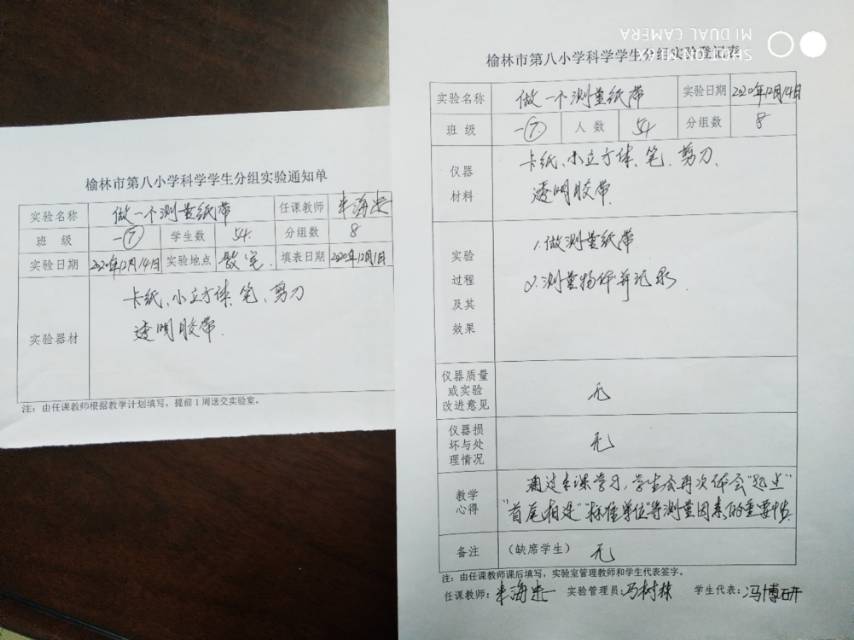 榆林市第八小学科学学生分组实验通知单
实验名称 做一个测量纸带 任课教师
班级 一⑦ 学生数 54 分组数 8
实验日期 2020年12月14日 实验地点 教室 填表日期 2020年12月1日
实验器材
卡纸、小立方体、笔、剪刀
透明胶带
注：由任课教师根据教学计划填写，提前1周送交实验室。
SHOT ON
MI DUAL CAMERA
榆林市第八小学科学学生分组实验登记表
实验名称 做一个测量纸带 实验日期 2020年12月14日
班级 一⑦ 人数 54 分组数 8
仪器
材料
卡纸、小立方体、笔、剪刀、
透明胶带
实验
过程
及其
效果
1.做测量纸带
2.测量物体并记录
仪器质量
或实验
改进意见
无
仪器损
坏与处
理情况
无
教学
心得
通过本课学习,学生会再次体会"起点"
"首尾相连""标准单位"等测量因素的重要性
备注 (缺席学生) 无
注：由任课教师课后填写，实验室管理教师和学生代表签字。
任课教师: 实验管理员: 学生代表: 冯博研